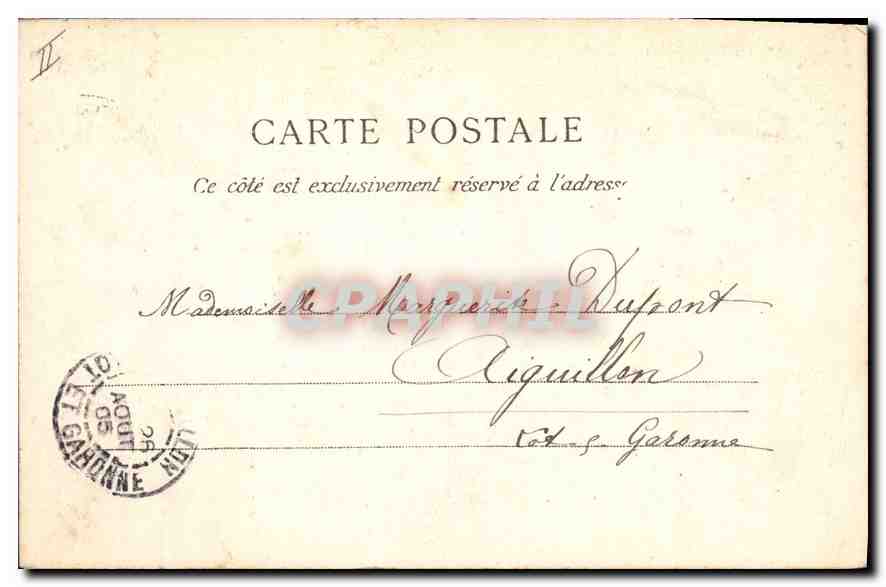 II
CARTE POSTALE
Ce côté est exclusivement réservé à l'adresse
CPAPHIL
Mademoiselle Marguerite Dupont
Aiguillon
Lot & Garonne
LOT ET GARONNE
26
AOUT
05